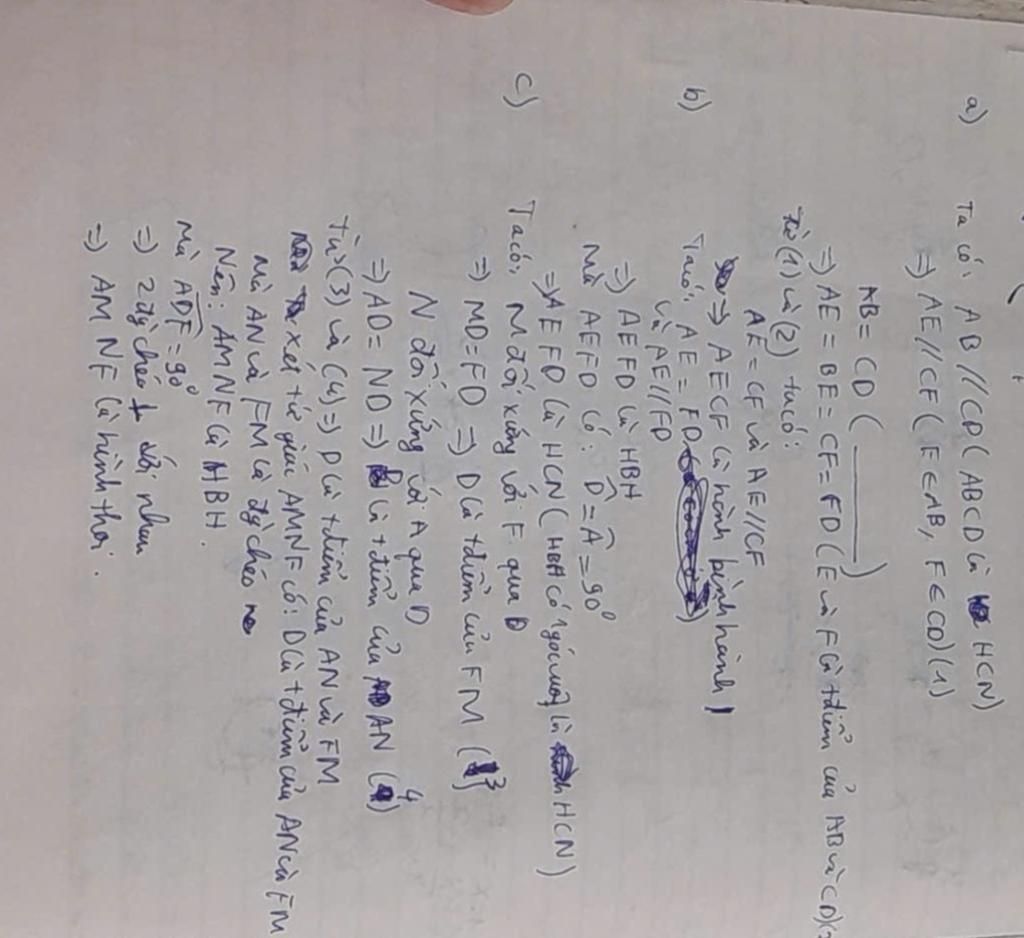 a) Ta có: AB // CD ( ABCD là HCN)
=) AE // CF ( E ∈ AB, F ∈ CD) (1)
AB = CD ( ______ )
=) AE = BE = CF = FD ( E và F là +điểm của AB và CD)(2
từ (1) và (2) ta có:
AE = CF và AE // CF
=) AECF là hình bình hành
b) Ta có: AE = FD
và AE // FD
=) AEFD là HBH
Mà AEFD có: D̂ = Â = 90°
=) AEFD là HCN ( HBH có 1 góc vuông là HCN)
c) Ta có: M đối xứng với F qua D
=) MD = FD =) D là +điểm của FM (3)
N đối xứng với A qua D
=) AD = ND =) D là +điểm của AN (4)
Từ (3) và (4) =) D là +điểm của AN và FM
xét tứ giác AMNF có: D là +điểm của AN và FM
Mà AN và FM là đg chéo
Nên: AMNF là HBH.
Mà ADF = 90°
=) 2 đg chéo ⊥ với nhau
=) AMNF là hình thoi.